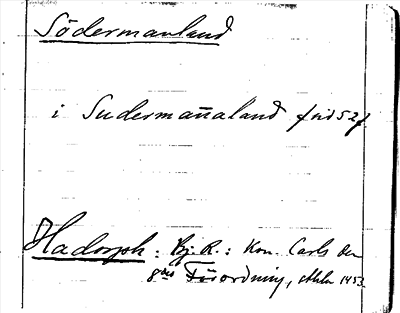 Södermanland
i Sudermañaland
Hadorph: Bj. R.: Kon. Carls den
8des Förordning, 1453